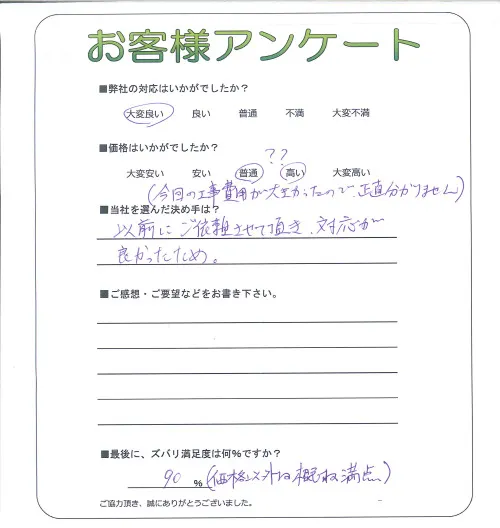 お客様アンケート
■弊社の対応はいかがでしたか？
大変良い 良い 普通 不満 大変不満
■価格はいかがでしたか？
??
大変安い 安い 普通 高い 大変高い
(今回の工事費用が大きかったので正直分かりません)
■当社を選んだ決め手は？
以前にご依頼させて頂き、対応が
良かったため。
■ご感想・ご要望などをお書き下さい。
■最後に、ズバリ満足度は何％ですか？
90 % (価格以外は概ね満点)
ご協力頂き、誠にありがとうございました。